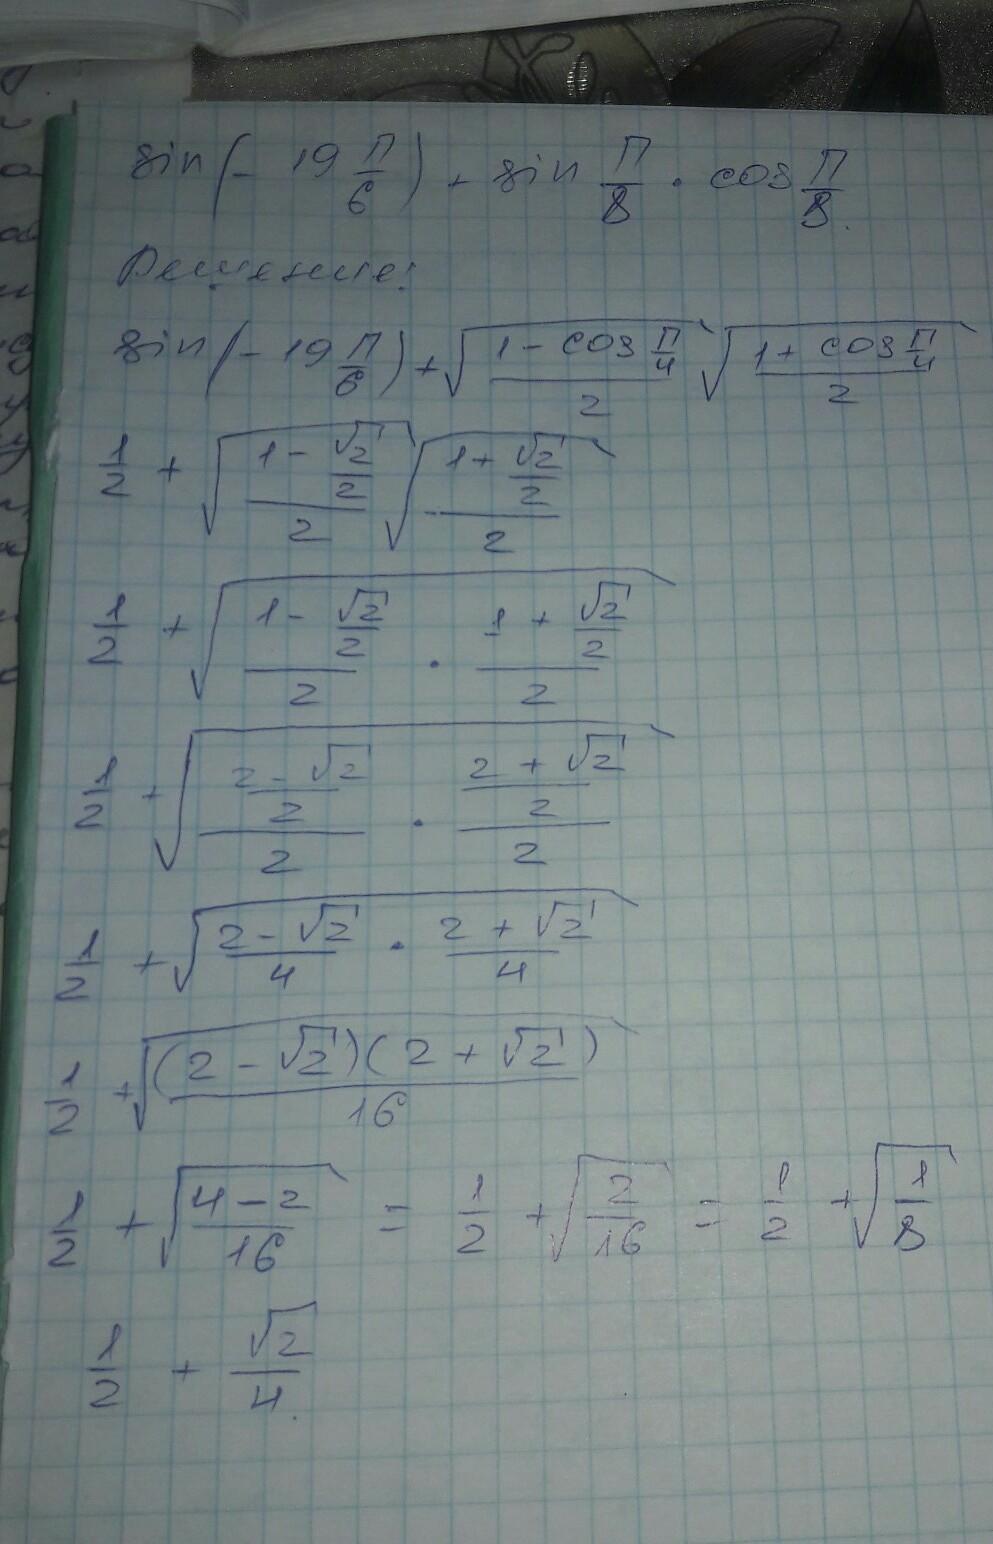 sin(- 19 π/6) + sin π/8 · cos π/8.
Решение:
sin(- 19 π/6) + √((1 - cos π/4)/2) √((1 + cos π/4)/2)
1/2 + √((1 - √2/2)/2) √((1 + √2/2)/2)
1/2 + √((1 - √2/2)/2 · (1 + √2/2)/2)
1/2 + √(((2 - √2)/2)/2 · ((2 + √2)/2)/2)
1/2 + √((2 - √2)/4 · (2 + √2)/4)
1/2 + √((2 - √2)(2 + √2)/16)
1/2 + √((4 - 2)/16) = 1/2 + √(2/16) = 1/2 + √(1/8)
1/2 + √2/4.